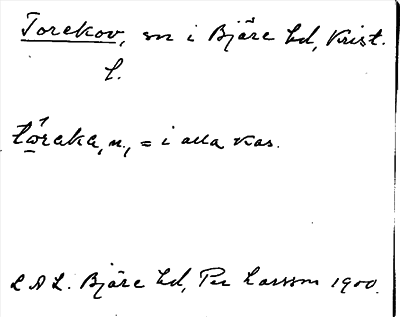 Torekov, sn i Bjäre hd, Krist.
l.
tǿraka, n., = i alla kas.
L A L. Bjäre hd, Per Larsson 1900.